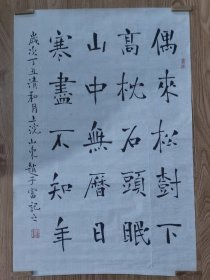 偶來松樹下
高枕石頭眠
山中無曆日
寒盡不知年
歲次丁丑清和月上浣山東趙子富記之